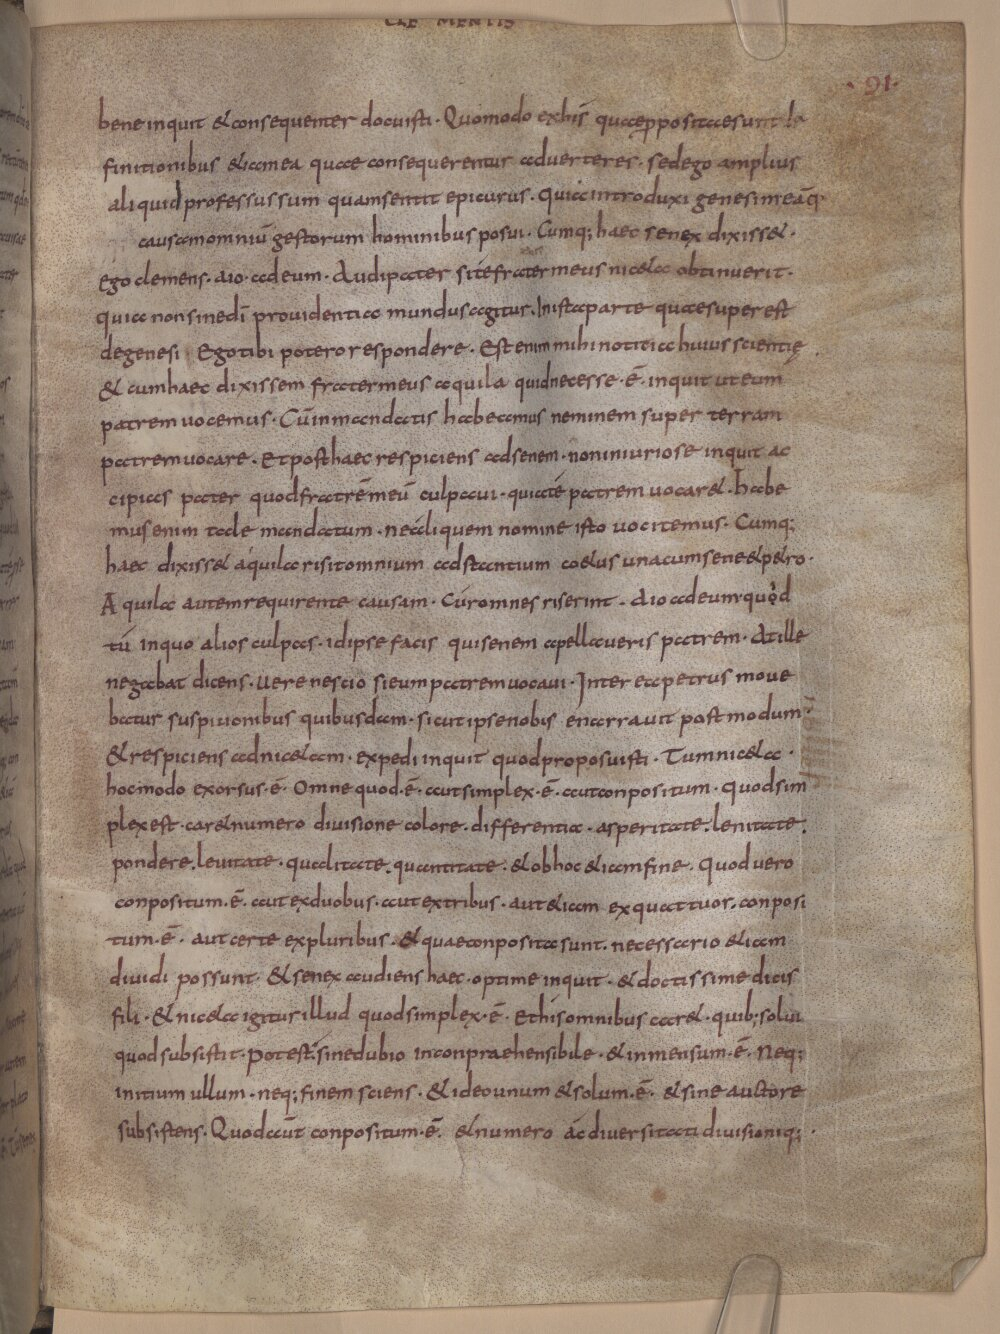 CLEMENTIS
· 91 ·
bene inquit &consequenter docuisti · Quomodo exhis quae ppositaesunt
finitionibus &iam ea quae consequerentur aduerteres · sedego amplius
aliquid professus sum quamsentit epicurus · quia introduxi genesim eāq·
causamomniū gestorum hominibus posui · Cumq; haec senex dixiss& ·
ego clemens · aio · adeum · Audipater sitefratermeus nic&a obtinuerit ·
quia nonsinedī prouidentia mundus agitur · Inistaparte quaesuperest
degenesi Egotibi poterorespondere · Estenim mihi notitia huius scientię
& cumhaec dixissem fratermeus aquila quidnecesse · ē · inquit uteum
patrem uocemus · Cūinmandatis habeamus neminem super terram
patremuocare · Etposthaec respiciens adsenem · noniniuriose inquit ac
cipias pater quodfratrēmeū culpaui · quiate patrem uocar& · habe
musenim tale mandatum · neáliquem nomine isto uocitemus · Cumq;
haec dixiss& áquila risitomnium adstantium co&us unacumsene&p&ro ·
Aquila autemrequirente causam · Cúromnesriserint · Aioadeum quod
tū inquo alios culpas · idipse facis quisenem apellaueris patrem · Atille
negabat dicens · uere nescio sieumpatremuocaui · Inter ea petrus moue
batur suspitionibus quibusdam · sicut ipsenobis enarrauit postmodum ·
&respiciens adnic&am · expedi inquit quodproposuisti · Tumnic&a ·
hocmodo exorsus · ē · Omne quod · ē · autsimplex · ē · autconpositum · quodsim
plexest · car&numero diuisione colore · differentia · asperitate · lenitate ·
pondere · leuitate · qualitate · quantitate · &obhoc &iamfine · Quoduero
conpositum · ē · aut exduobus · aut extribus · aut&iam exquattuor · conposi
tum · ē · aut certe expluribus · & quaeconposita sunt · necessario &iam
diuidi possunt · & senex audiens haec · optime inquit · &doctissime dicis
fili · & nic&a igitur illud quodsimplex · ē · Ethisomnibus car& · quib; solui
quodsubsistit · potest · sinedubio inconpraehensibile · &inmensum · ē · Neq;
initium ullum · neq; finem sciens · & ideounum &solum · ē · &sine auctore
subsistens · Quodaūt conpositum · ē · &numero ácdiuersitati diuisioniq; ·